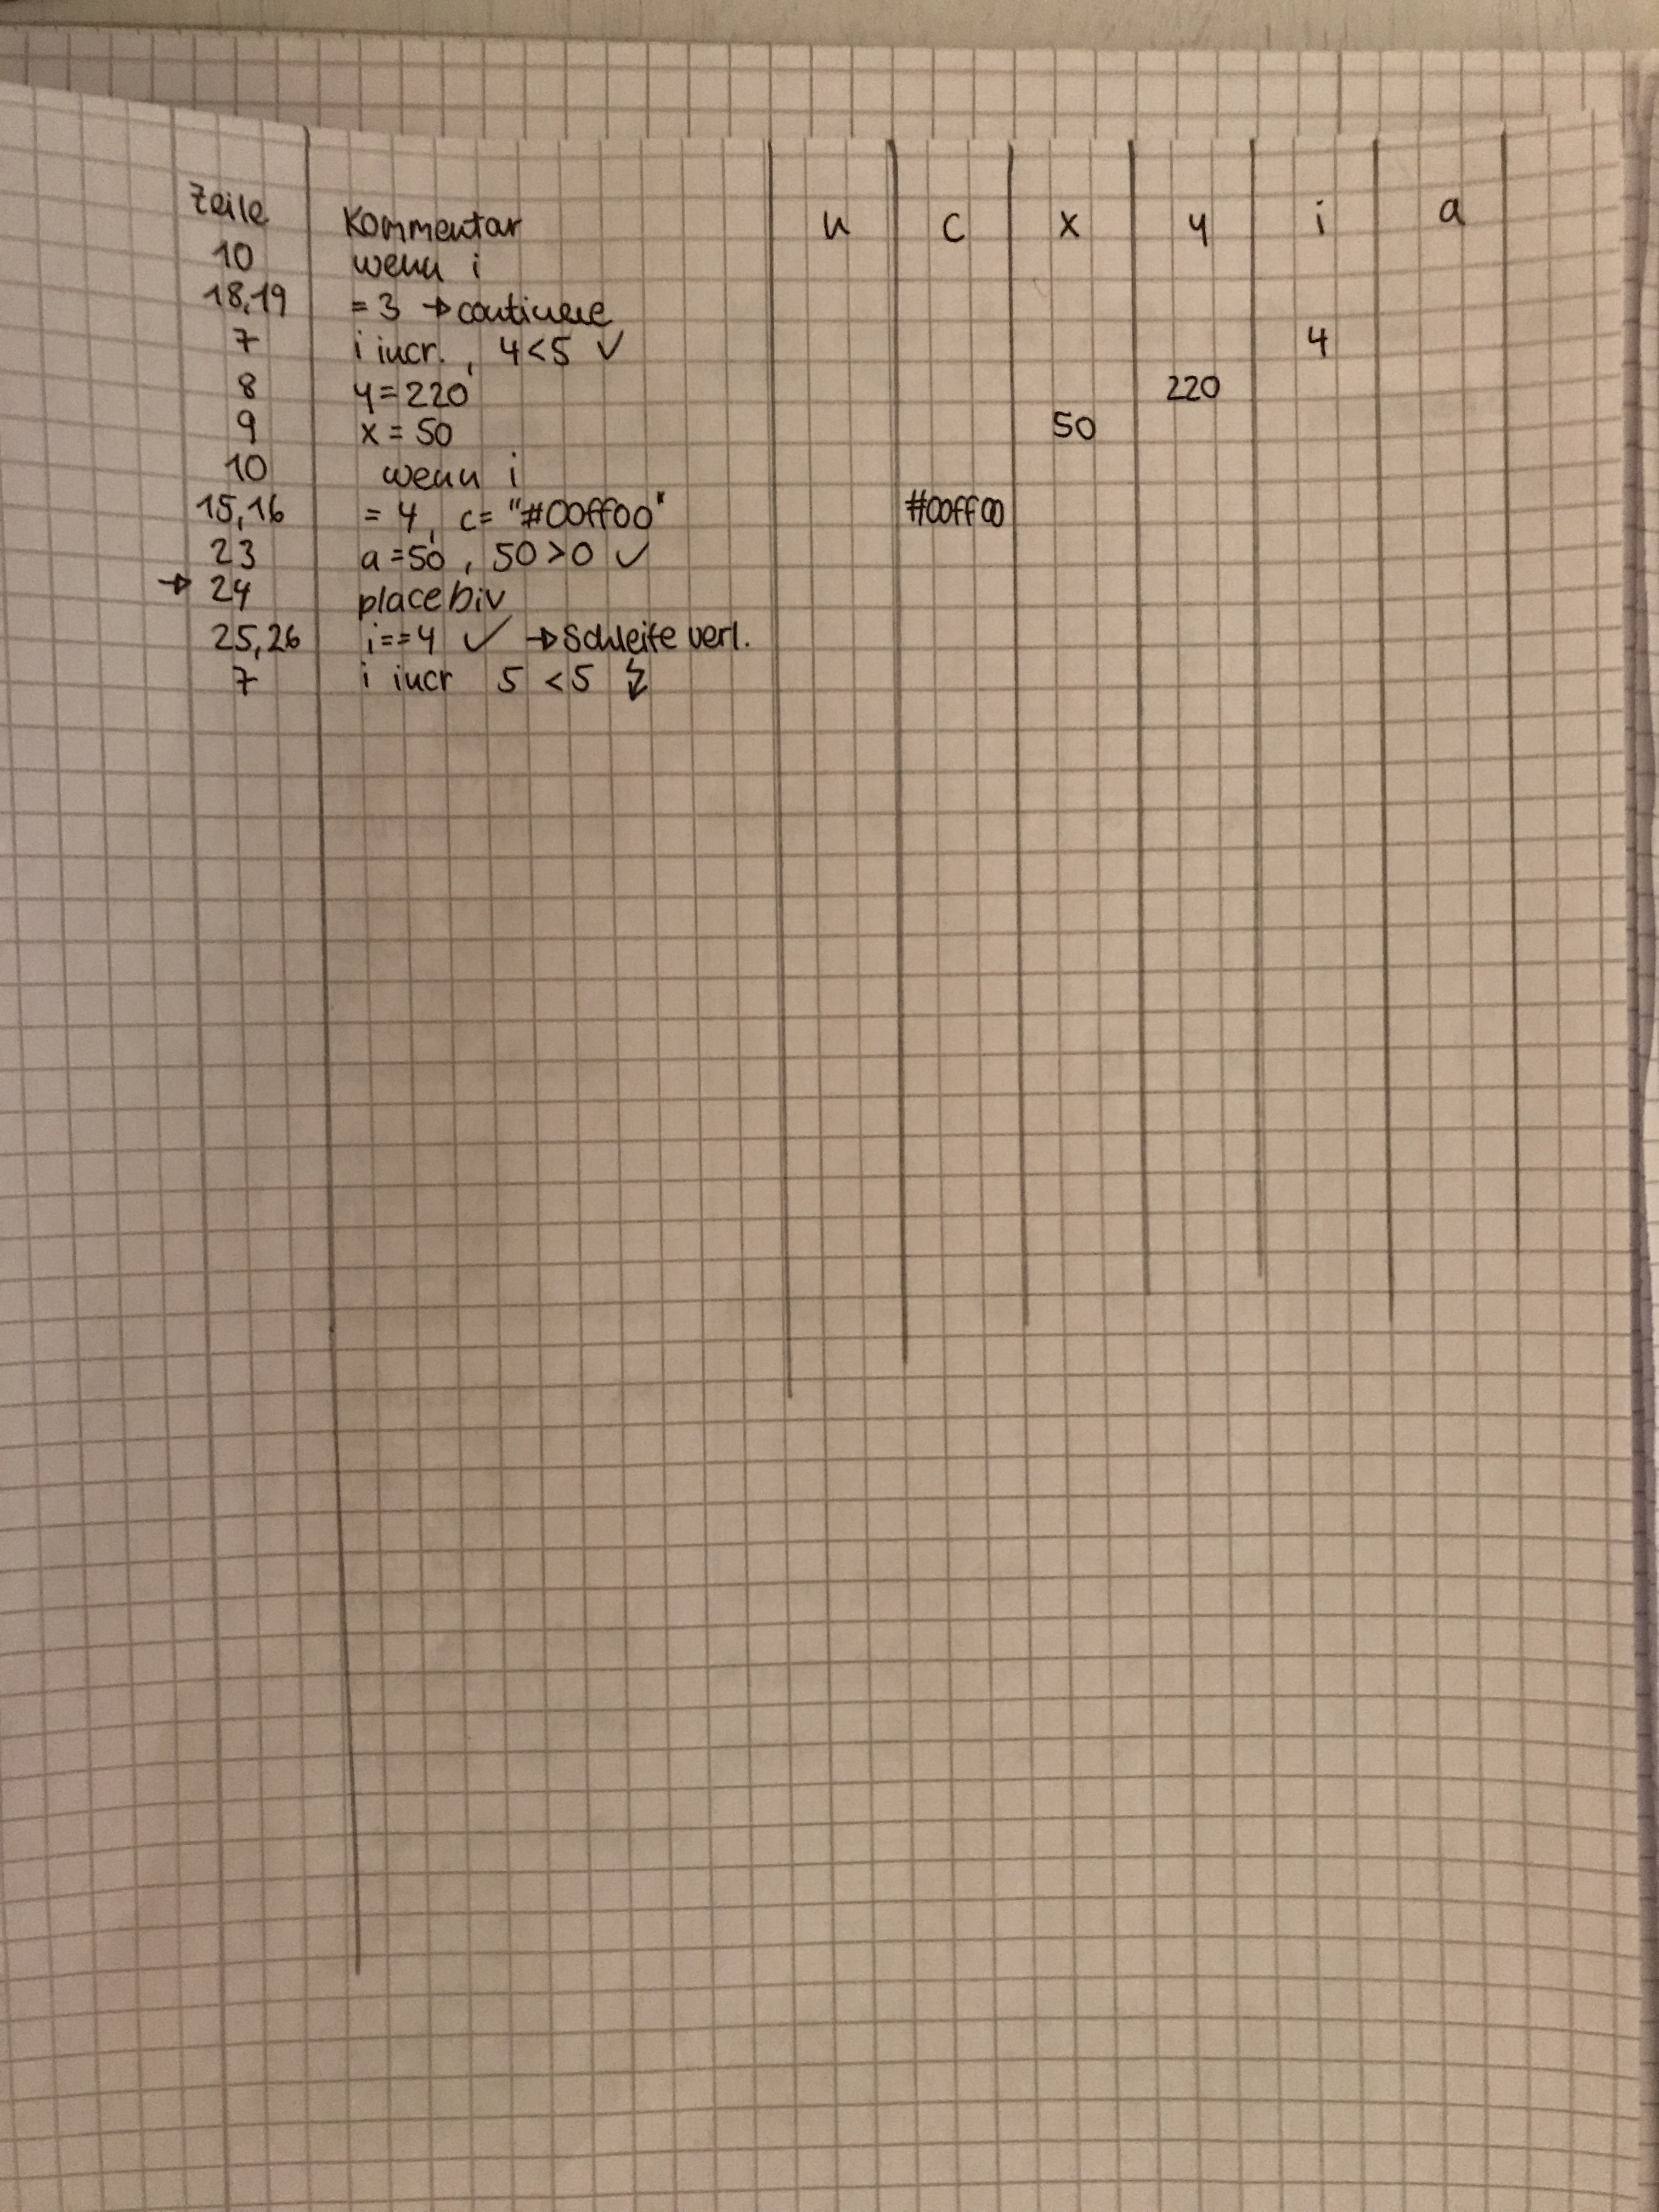 Zeile Kommentar n c x y i a
10 wenn i
18,19 = 3 → continue
7 i incr. , 4<5 ✓ 4
8 y=220 220
9 x = 50 50
10 wenn i
15,16 = 4, c= "#00ff00" #00ff00
23 a=50, 50>0 ✓
→ 24 placeDiv
25,26 i==4 ✓ → Schleife verl.
7 i incr 5 <5 ↯